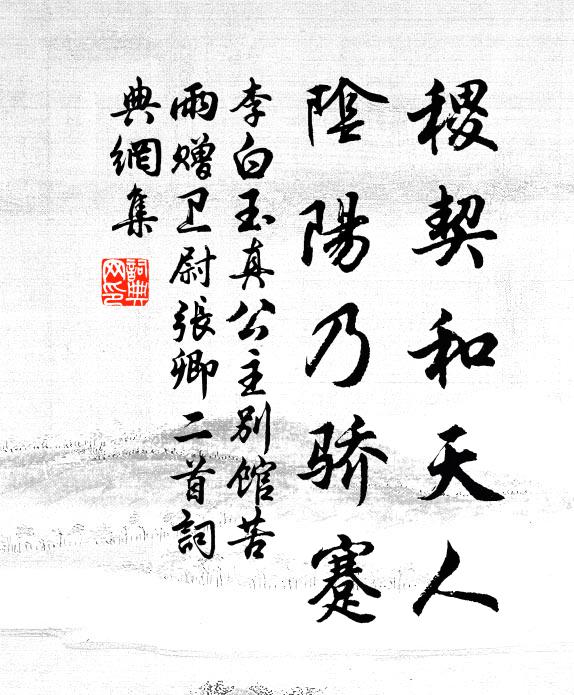 稷契和天人
陰陽乃骄蹇
李白玉真公主别馆苦
雨赠卫尉張卿二首詞
典網集
詞典网印